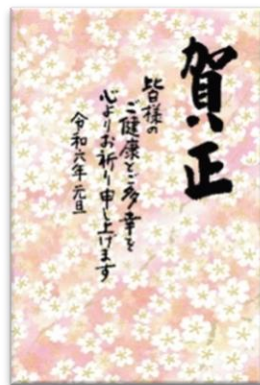 賀正
皆様の
ご健康とご多幸を
心よりお祈り申し上げます
令和六年 元旦